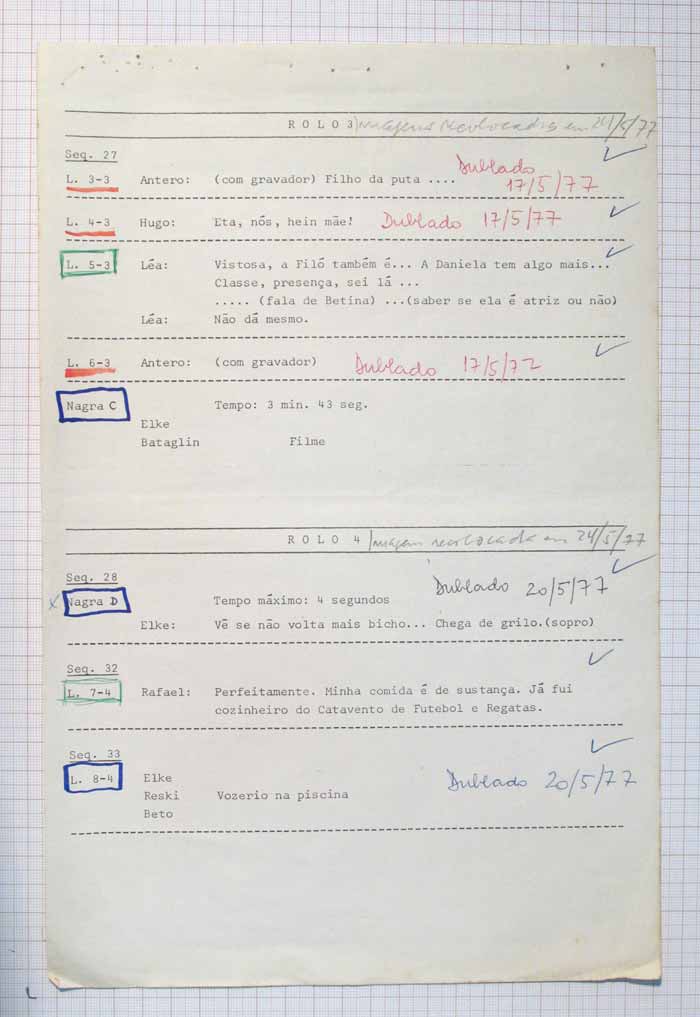 ROLO 3 imagens recolocadas em 24/5/77
Seq. 27
Dublado
L. 3-3 Antero: (com gravador) Filho da puta ....
17/5/77
L. 4-3 Hugo: Eta, nós, hein mãe! Dublado 17/5/77
L. 5-3 Léa: Vistosa, a Filó também é... A Daniela tem algo mais...
Classe, presença, sei lá ...
..... (fala de Betina) ...(saber se ela é atriz ou não)
Léa: Não dá mesmo.
L. 6-3 Antero: (com gravador) Dublado 17/5/77
Nagra C Tempo: 3 min. 43 seg.
Elke
Bataglin Filme
ROLO 4 imagem recolocada em 24/5/77
Seq. 28
Dublado 20/5/77
x Nagra D Tempo máximo: 4 segundos
Elke: Vê se não volta mais bicho... Chega de grilo.(sopro)
Seq. 32
L. 7-4 Rafael: Perfeitamente. Minha comida é de sustança. Já fui
cozinheiro do Catavento de Futebol e Regatas.
Seq. 33
L. 8-4 Elke
Dublado 20/5/77
Reski Vozerio na piscina
Beto